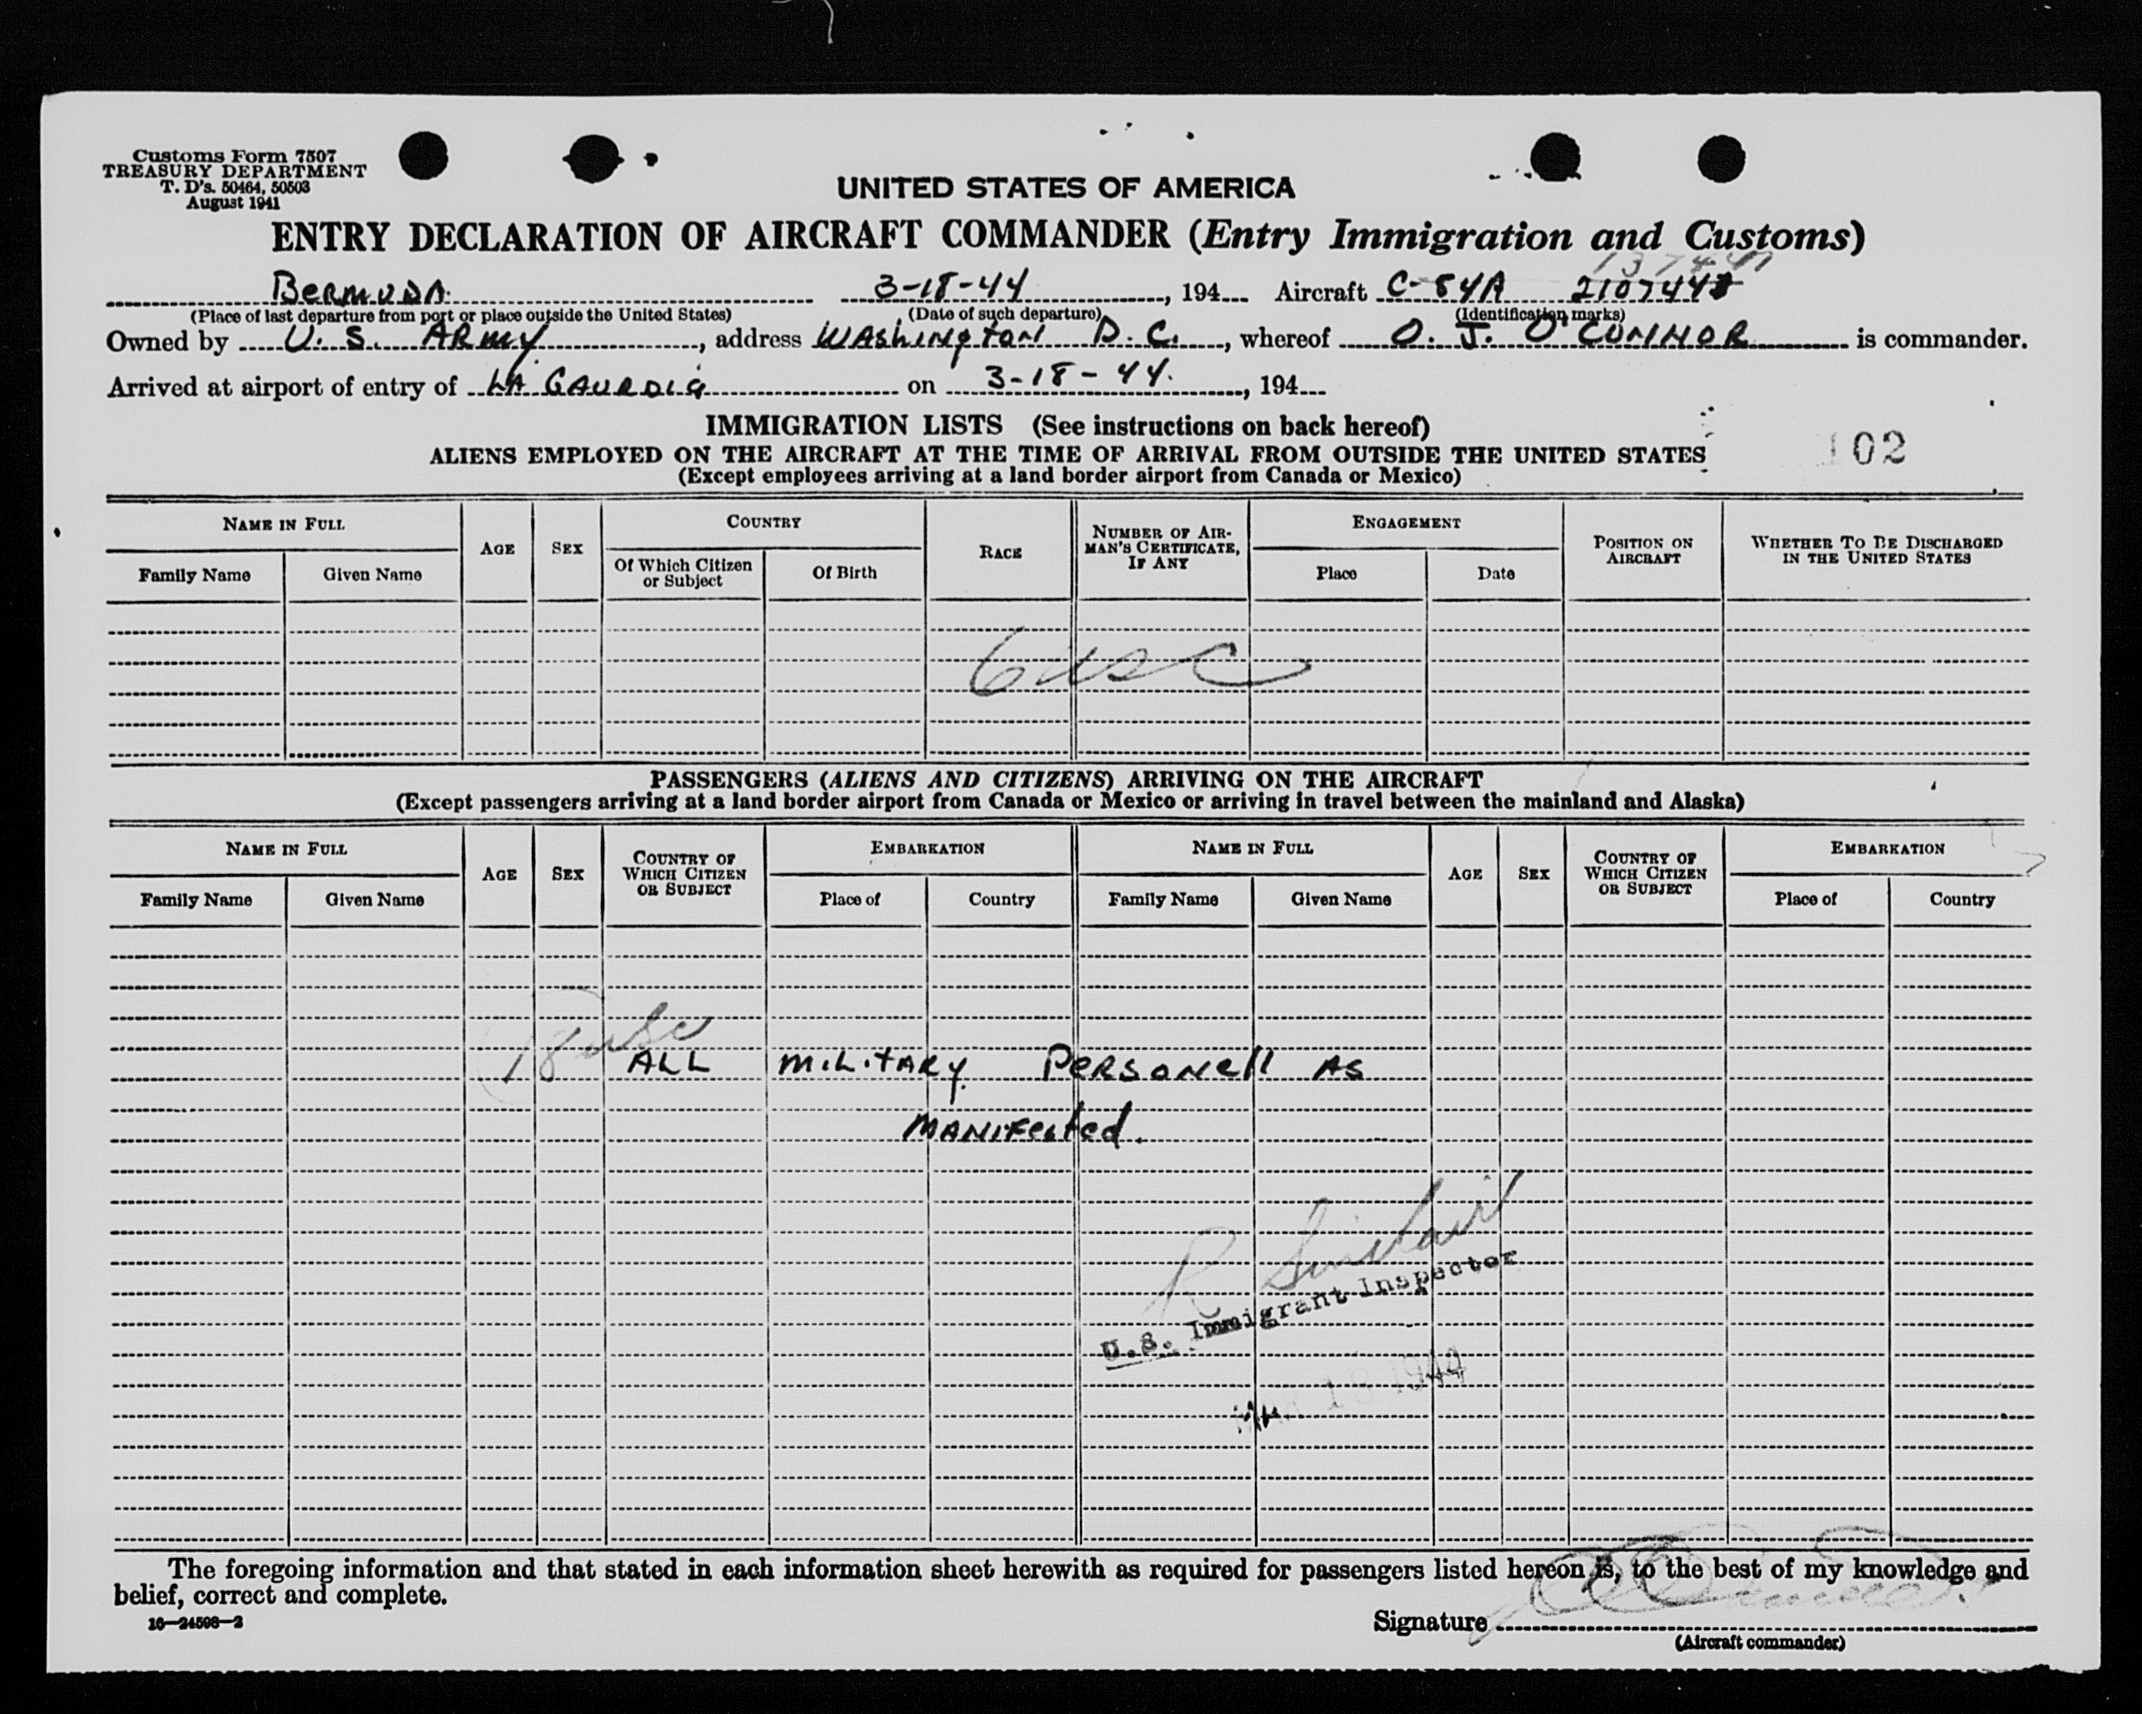 Customs Form 7507
TREASURY DEPARTMENT
T. D's. 50464, 50503
August 1941
UNITED STATES OF AMERICA
ENTRY DECLARATION OF AIRCRAFT COMMANDER (Entry Immigration and Customs)
BERMUDA 3-18-44, 194 Aircraft C-54A
(Place of last departure from port or place outside the United States) (Date of such departure) (Identification marks)
Owned by U. S. ARMY, address WAShINgtON D. C., whereof O. J. O'CONNOR is commander.
Arrived at airport of entry of LA GAURDIA on 3-18-44., 194
IMMIGRATION LISTS (See instructions on back hereof)
102
ALIENS EMPLOYED ON THE AIRCRAFT AT THE TIME OF ARRIVAL FROM OUTSIDE THE UNITED STATES
(Except employees arriving at a land border airport from Canada or Mexico)
NAME IN FULL AGE SEX COUNTRY RACE NUMBER OF AIRMAN'S CERTIFICATE, IF ANY ENGAGEMENT POSITION ON AIRCRAFT WHETHER TO BE DISCHARGED IN THE UNITED STATES
Family Name Given Name Of Which Citizen or Subject Of Birth Place Date
6 USC
PASSENGERS (ALIENS AND CITIZENS) ARRIVING ON THE AIRCRAFT
(Except passengers arriving at a land border airport from Canada or Mexico or arriving in travel between the mainland and Alaska)
NAME IN FULL AGE SEX COUNTRY OF WHICH CITIZEN OR SUBJECT EMBARKATION NAME IN FULL AGE SEX COUNTRY OF WHICH CITIZEN OR SUBJECT EMBARKATION
Family Name Given Name Place of Country Family Name Given Name Place of Country
18 usc
ALL MiLitARY PeRSONell AS
MANIFested.
R Sinclair
U.S. Immigrant Inspector
MAR 18 1944
The foregoing information and that stated in each information sheet herewith as required for passengers listed hereon is, to the best of my knowledge and
belief, correct and complete.
16—24598-2
Signature
(Aircraft commander)